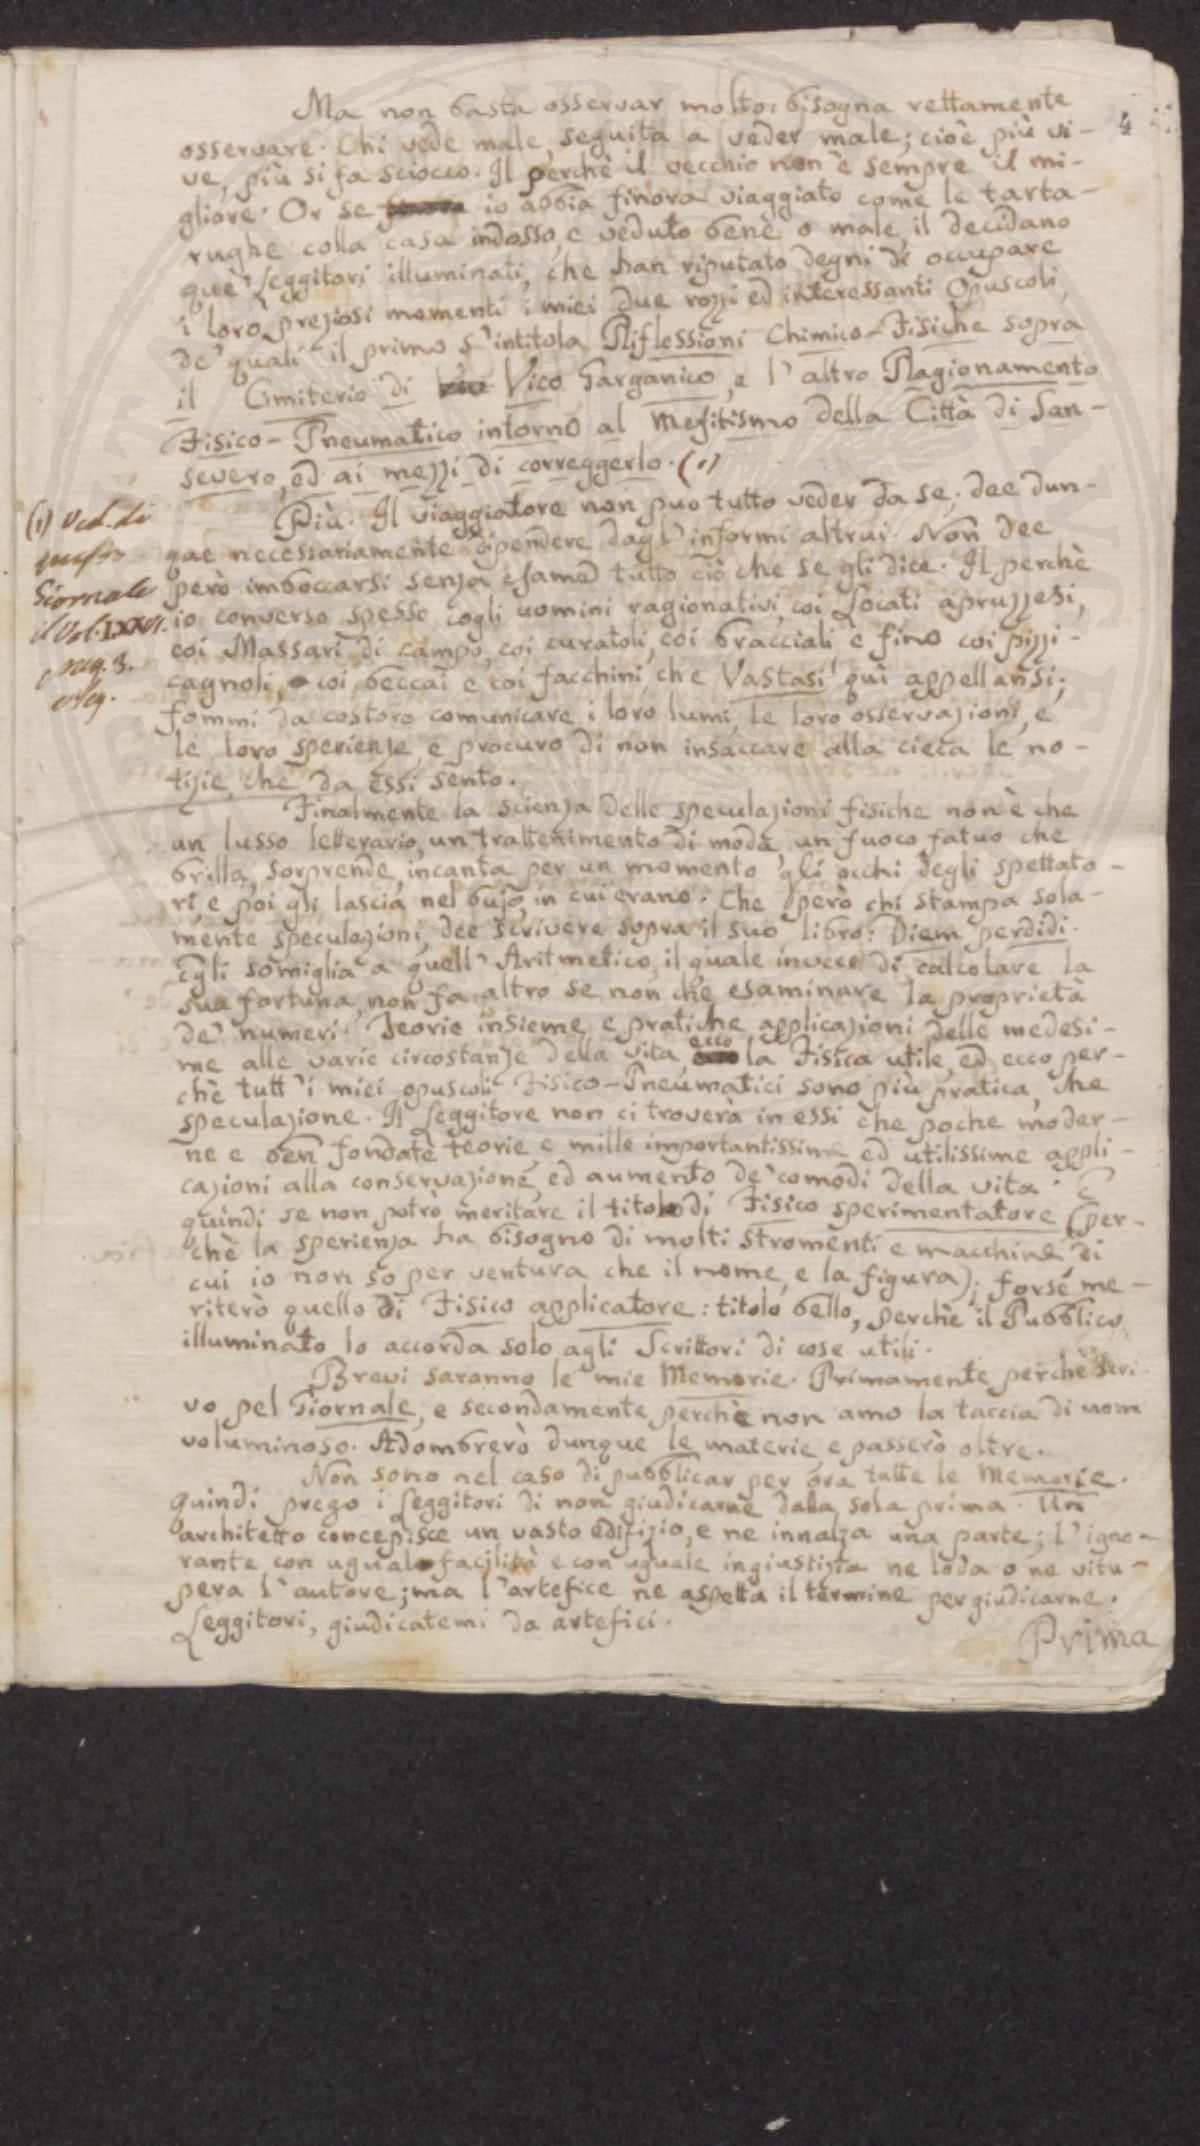 4
Ma non basta osservar molto: bisogna rettamente
osservare. Chi vede male, seguita a veder male; cioè più vi-
ve, più si fa sciocco. Il perchè il vecchio non è sempre il mi-
gliore. Or se io abbia finora viaggiato come le tarta-
rughe colla casa indosso, e veduto bene o male, il decidano
que' Leggitori illuminati, che han riputato degni di occupare
i loro preziosi momenti i miei due rozzi ed interessanti Opuscoli,
de' quali il primo s'intitola Riflessioni Chimico-Fisiche sopra
il Cimiterio di Vico Garganico, e l'altro Ragionamento
Fisico-Pneumatico intorno al Mefitismo della Città di San-
severo, ed ai mezzi di correggerlo. (1)
(1) Ved. di
questo
Giornale
il Vol. LXXVI.
pag. 3.
e seg.
Più. Il viaggiatore non può tutto veder da se; dee dun-
que necessariamente dipendere dagl'informi altrui. Non dee
però imboccarsi senza esame tutto ciò che se gli dice. Il perchè
io converso spesso cogli uomini ragionativi, coi Locati apruzzesi,
coi Massari di campo, coi curatoli, coi bracciali e fino coi pizzi-
cagnoli, coi beccai e coi facchini, che Vastasi quì appellansi;
fommi da costoro comunicare i loro lumi, le loro osservazioni, e
le loro sperienze, e procuro di non insaccare alla cieca le no-
tizie, che da essi sento.
Finalmente la scienza delle speculazioni fisiche non è che
un lusso letterario, un trattenimento di moda, un fuoco fatuo che
brilla, sorprende, incanta per un momento gli occhi degli spettato-
ri, e poi gli lascia nel bujo, in cui erano. Che però chi stampa sola-
mente speculazioni, dee scrivere sopra il suo libro: Diem perdidi.
Egli somiglia a quell'Aritmetico, il quale invece di calcolare la
sua fortuna, non fa altro se non che esaminare la proprietà
de' numeri. Teorie insieme e pratiche applicazioni delle medesi-
me alle varie circostanze della vita, ecco la Fisica utile, ed ecco per-
chè tutt'i miei opuscoli Fisico-Pneumatici sono più pratica, che
speculazione. Il Leggitore non ci troverà in essi che poche moder-
ne e ben fondate teorie, e mille importantissime ed utilissime appli-
cazioni alla conservazione, ed aumento de' comodi della vita. E
quindi se non potrò meritare il titolo di Fisico sperimentatore (per-
chè la sperienza ha bisogno di molti stromenti e macchine, di
cui io non so per ventura che il nome, e la figura); forse me-
riterò quello di Fisico applicatore: titolo bello, perchè il Pubblico
illuminato lo accorda solo agli Scrittori di cose utili.
Brevi saranno le mie Memorie. Primamente perchè scri-
vo pel Giornale, e secondamente perchè non amo la taccia di uom
voluminoso. Adombrerò dunque le materie, e passerò oltre.
Non sono nel caso di pubblicar per ora tutte le Memorie.
Quindi prego i Leggitori di non giudicarne dalla sola prima. Un
architetto concepisce un vasto edifizio, e ne innalza una parte; l'igno-
rante con ugual facilità e con uguale ingiustizia ne loda o ne vitu-
pera l'autore; ma l'artefice ne aspetta il termine per giudicarne.
Leggitori, giudicatemi da artefici.
Prima